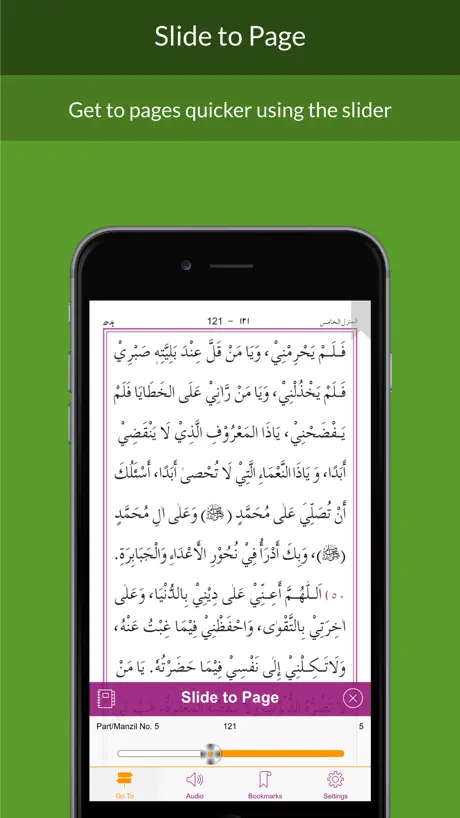 Slide to Page
Get to pages quicker using the slider
المنزل الخامس
121 – ١٢١
فَلَمْ يَحْرِمْنِيْ، وَيَا مَنْ قَلَّ عِنْدَ بَلِيَّتِهٖ صَبْرِيْ
فَلَمْ يَخْذُلْنِيْ، وَيَا مَنْ رَّانِيْ عَلَى الْخَطَايَا فَلَمْ
يَفْضَحْنِيْ، يَاذَا الْمَعْرُوْفِ الَّذِيْ لَا يَنْقَضِيْ
أَبَدًا، وَيَاذَا النَّعْمَاءِ الَّتِيْ لَا تُحْصٰى أَبَدًا، أَسْئَلُكَ
أَنْ تُصَلِّيَ عَلٰى مُحَمَّدٍ (ﷺ) وَعَلٰى اٰلِ مُحَمَّدٍ
(ﷺ)، وَبِكَ أَدْرَأُ فِيْ نُحُوْرِ الْأَعْدَاءِ وَالْجَبَابِرَةِ.
٥٠) اَللّٰهُمَّ أَعِنِّيْ عَلٰى دِيْنِيْ بِالدُّنْيَا، وَعَلٰى
اٰخِرَتِيْ بِالتَّقْوٰى، وَاحْفَظْنِيْ فِيْمَا غِبْتُ عَنْهُ،
وَلَاتَكِلْنِيْ إِلٰى نَفْسِيْ فِيْمَا حَضَرْتُهٗ. يَا مَنْ
Slide to Page
Part/Manzil No. 5 121 5
Go To Audio Bookmarks Settings